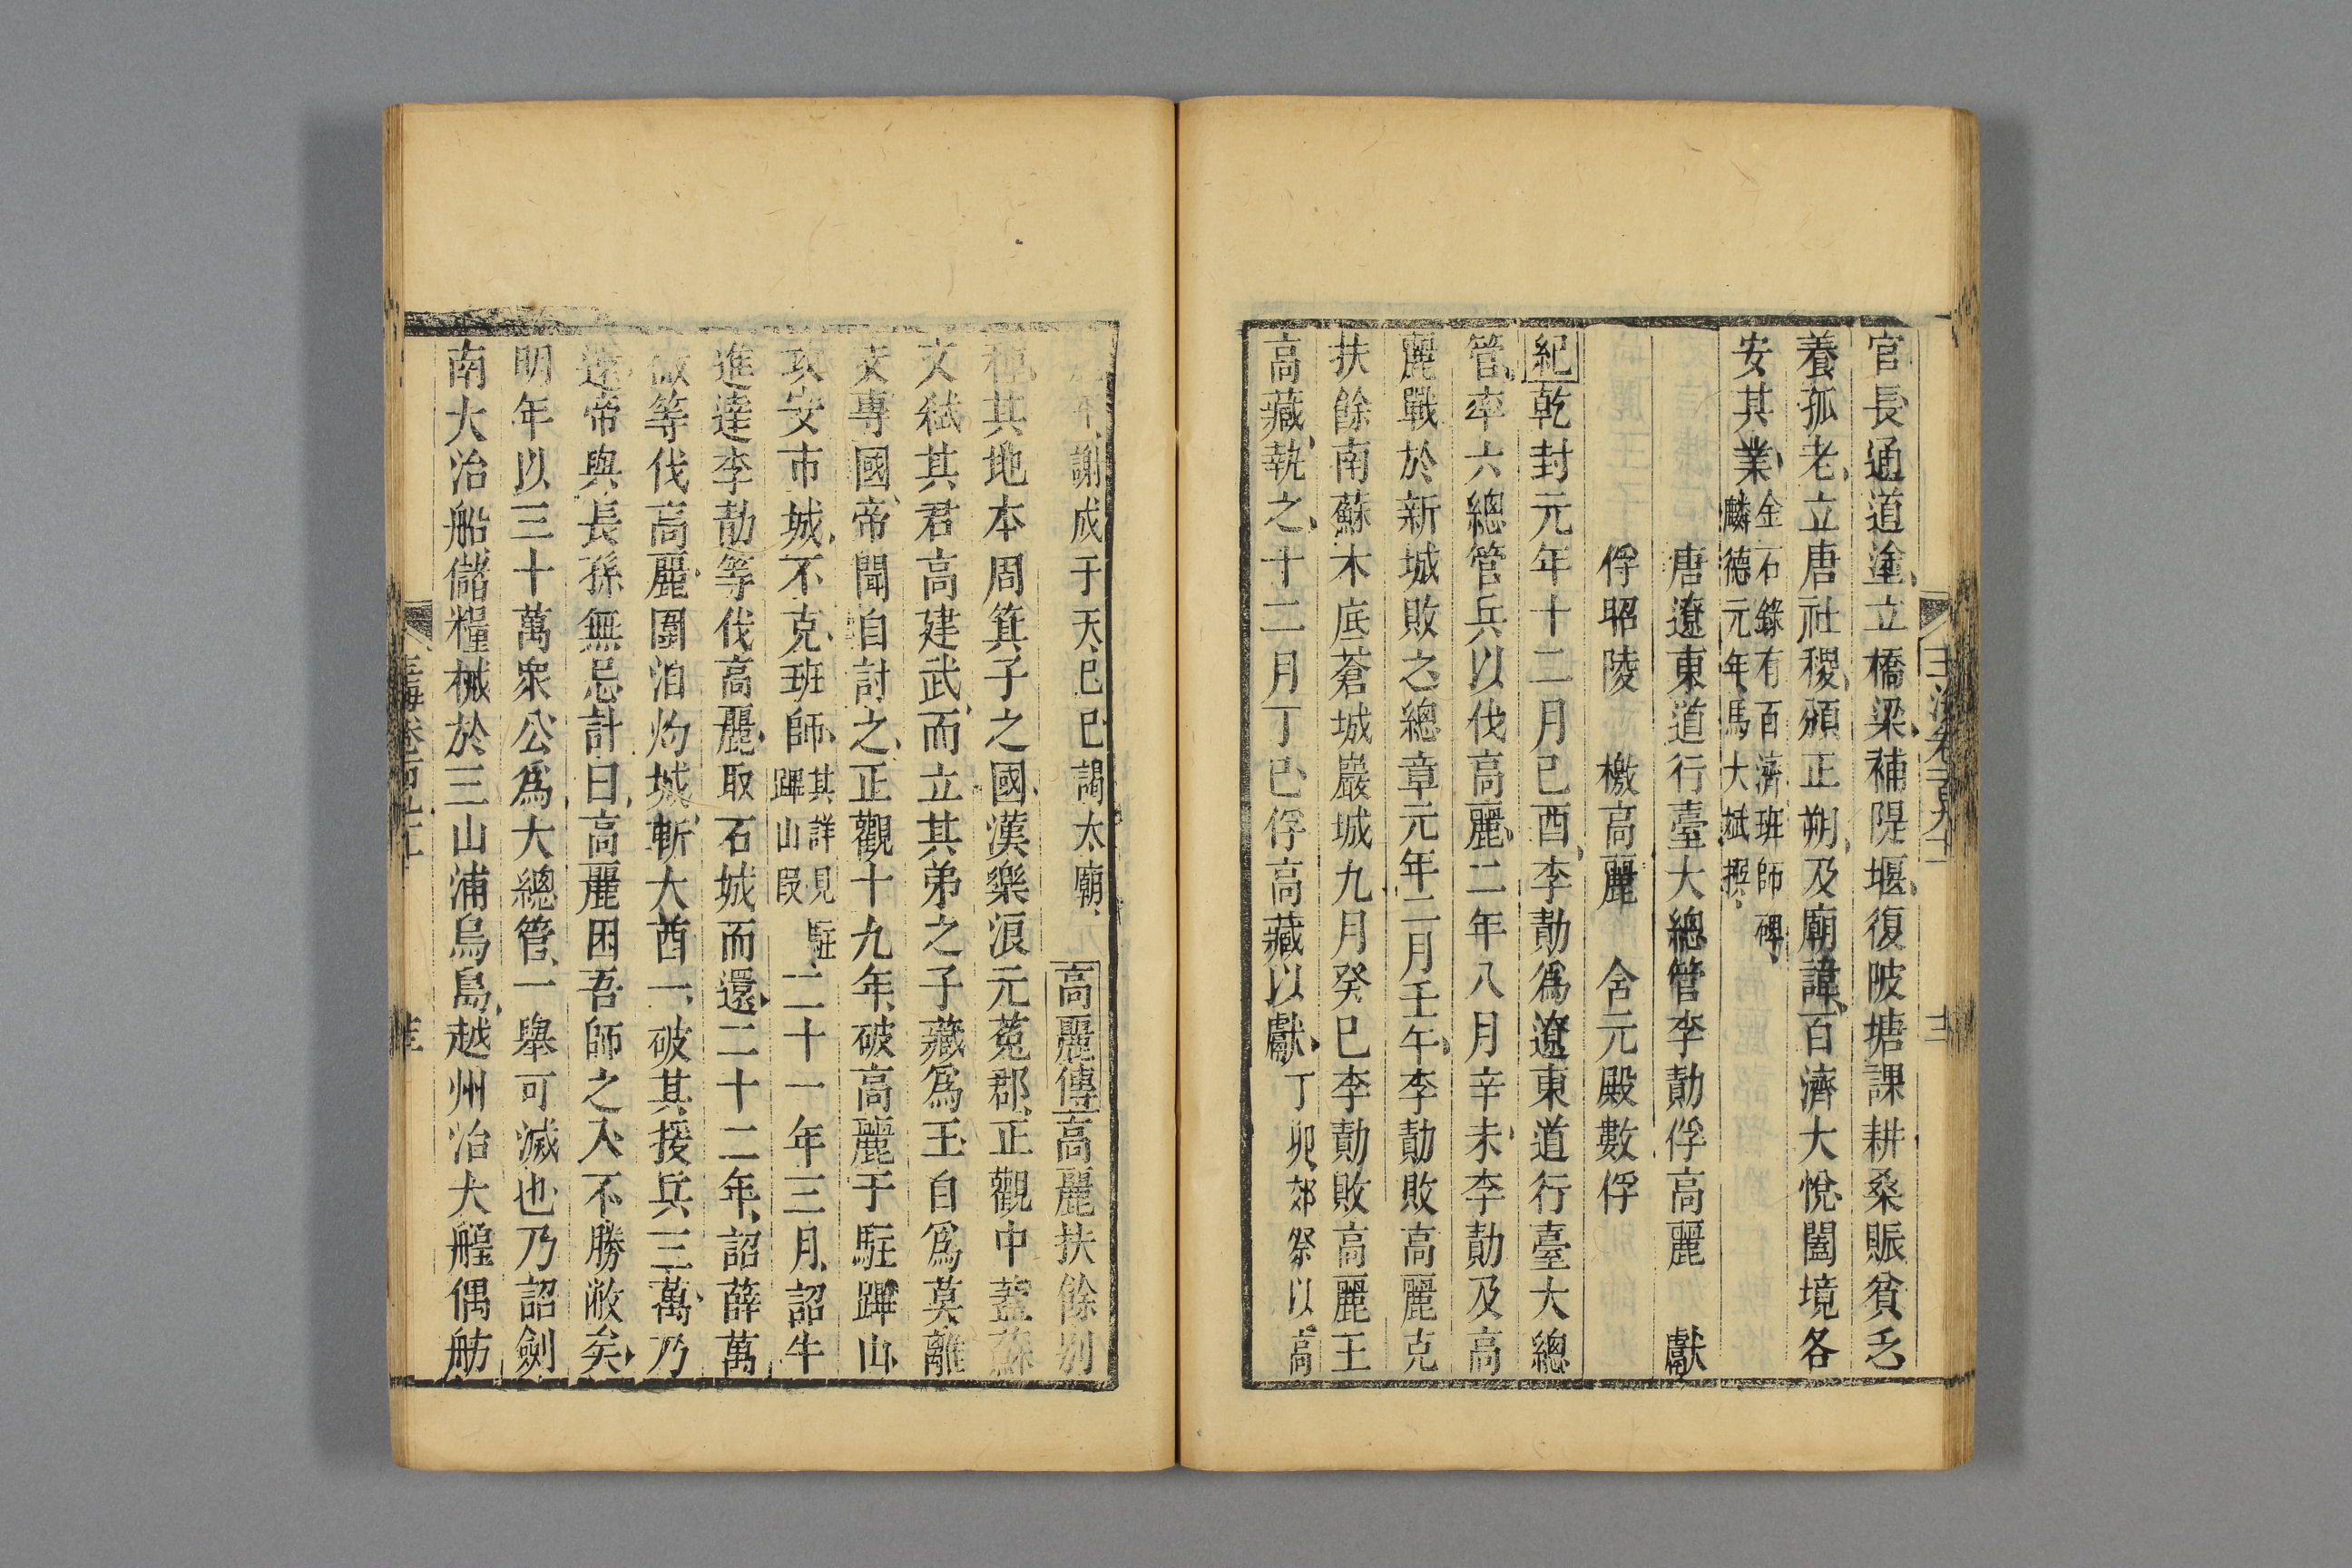 官長通道塗立橋梁補隄堰復陂塘課耕桑賑貧乏
養孤老立唐社稷頒正朔及廟諱百濟大悅闔境各
安其業金石錄有百濟班師碑
麟德元年馬大斌撰
唐遼東道行臺大總管李勣俘高麗 獻
俘昭陵 檄高麗 含元殿數俘
紀乾封元年十二月己酉李勣爲遼東道行臺大總
管率六總管兵以伐高麗二年八月辛未李勣及高
麗戰於新城敗之總章元年二月壬午李勣敗高麗克
扶餘南蘇木底蒼城巖城九月癸巳李勣敗高麗王
高藏執之十二月丁巳俘高藏以獻丁卯郊祭以高
謝成于天己巳謁太廟高麗傳高麗扶餘别
種其地本周箕子之國漢樂浪元菟郡正觀中蓋蘇
文弒其君高建武而立其弟之子藏爲王自爲莫離
支專國帝聞自討之正觀十九年破高麗于駐蹕山
攻安市城不克班師其詳見駐
蹕山段二十一年三月詔牛
進達李勣等伐高麗取石城而還二十二年詔薛萬
徹等伐高麗圍泊灼城斬大酋一破其援兵三萬乃
還帝與長孫無忌計曰高麗困吾師之入不勝敝矣
明年以三十萬衆公爲大總管一舉可滅也乃詔劍
南大治船儲糧械於三山浦烏島越州治大艎偶舫